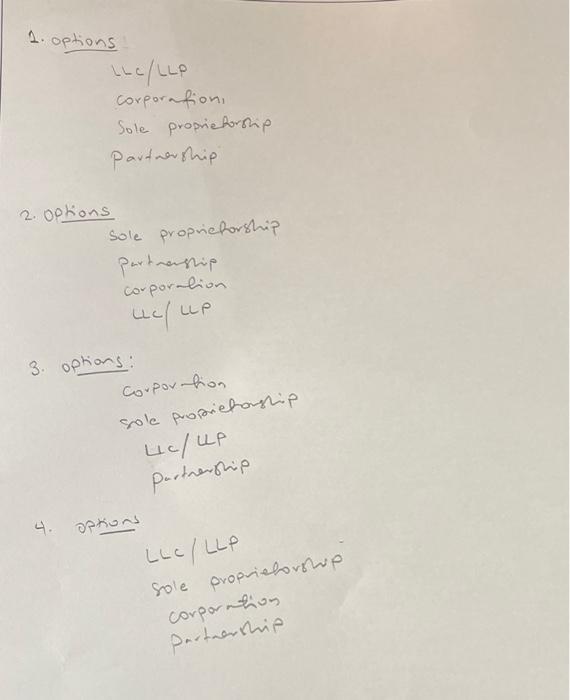 1. options:
LLC/LLP
corporation,
Sole proprietorship
partnership
2. options
Sole proprietorship
partnership
corporation
LLC/LLP
3. options:
corporation
sole proprietorship
LLC/LLP
partnership
4. options
LLC/LLP
sole proprietorship
corporation
partnership